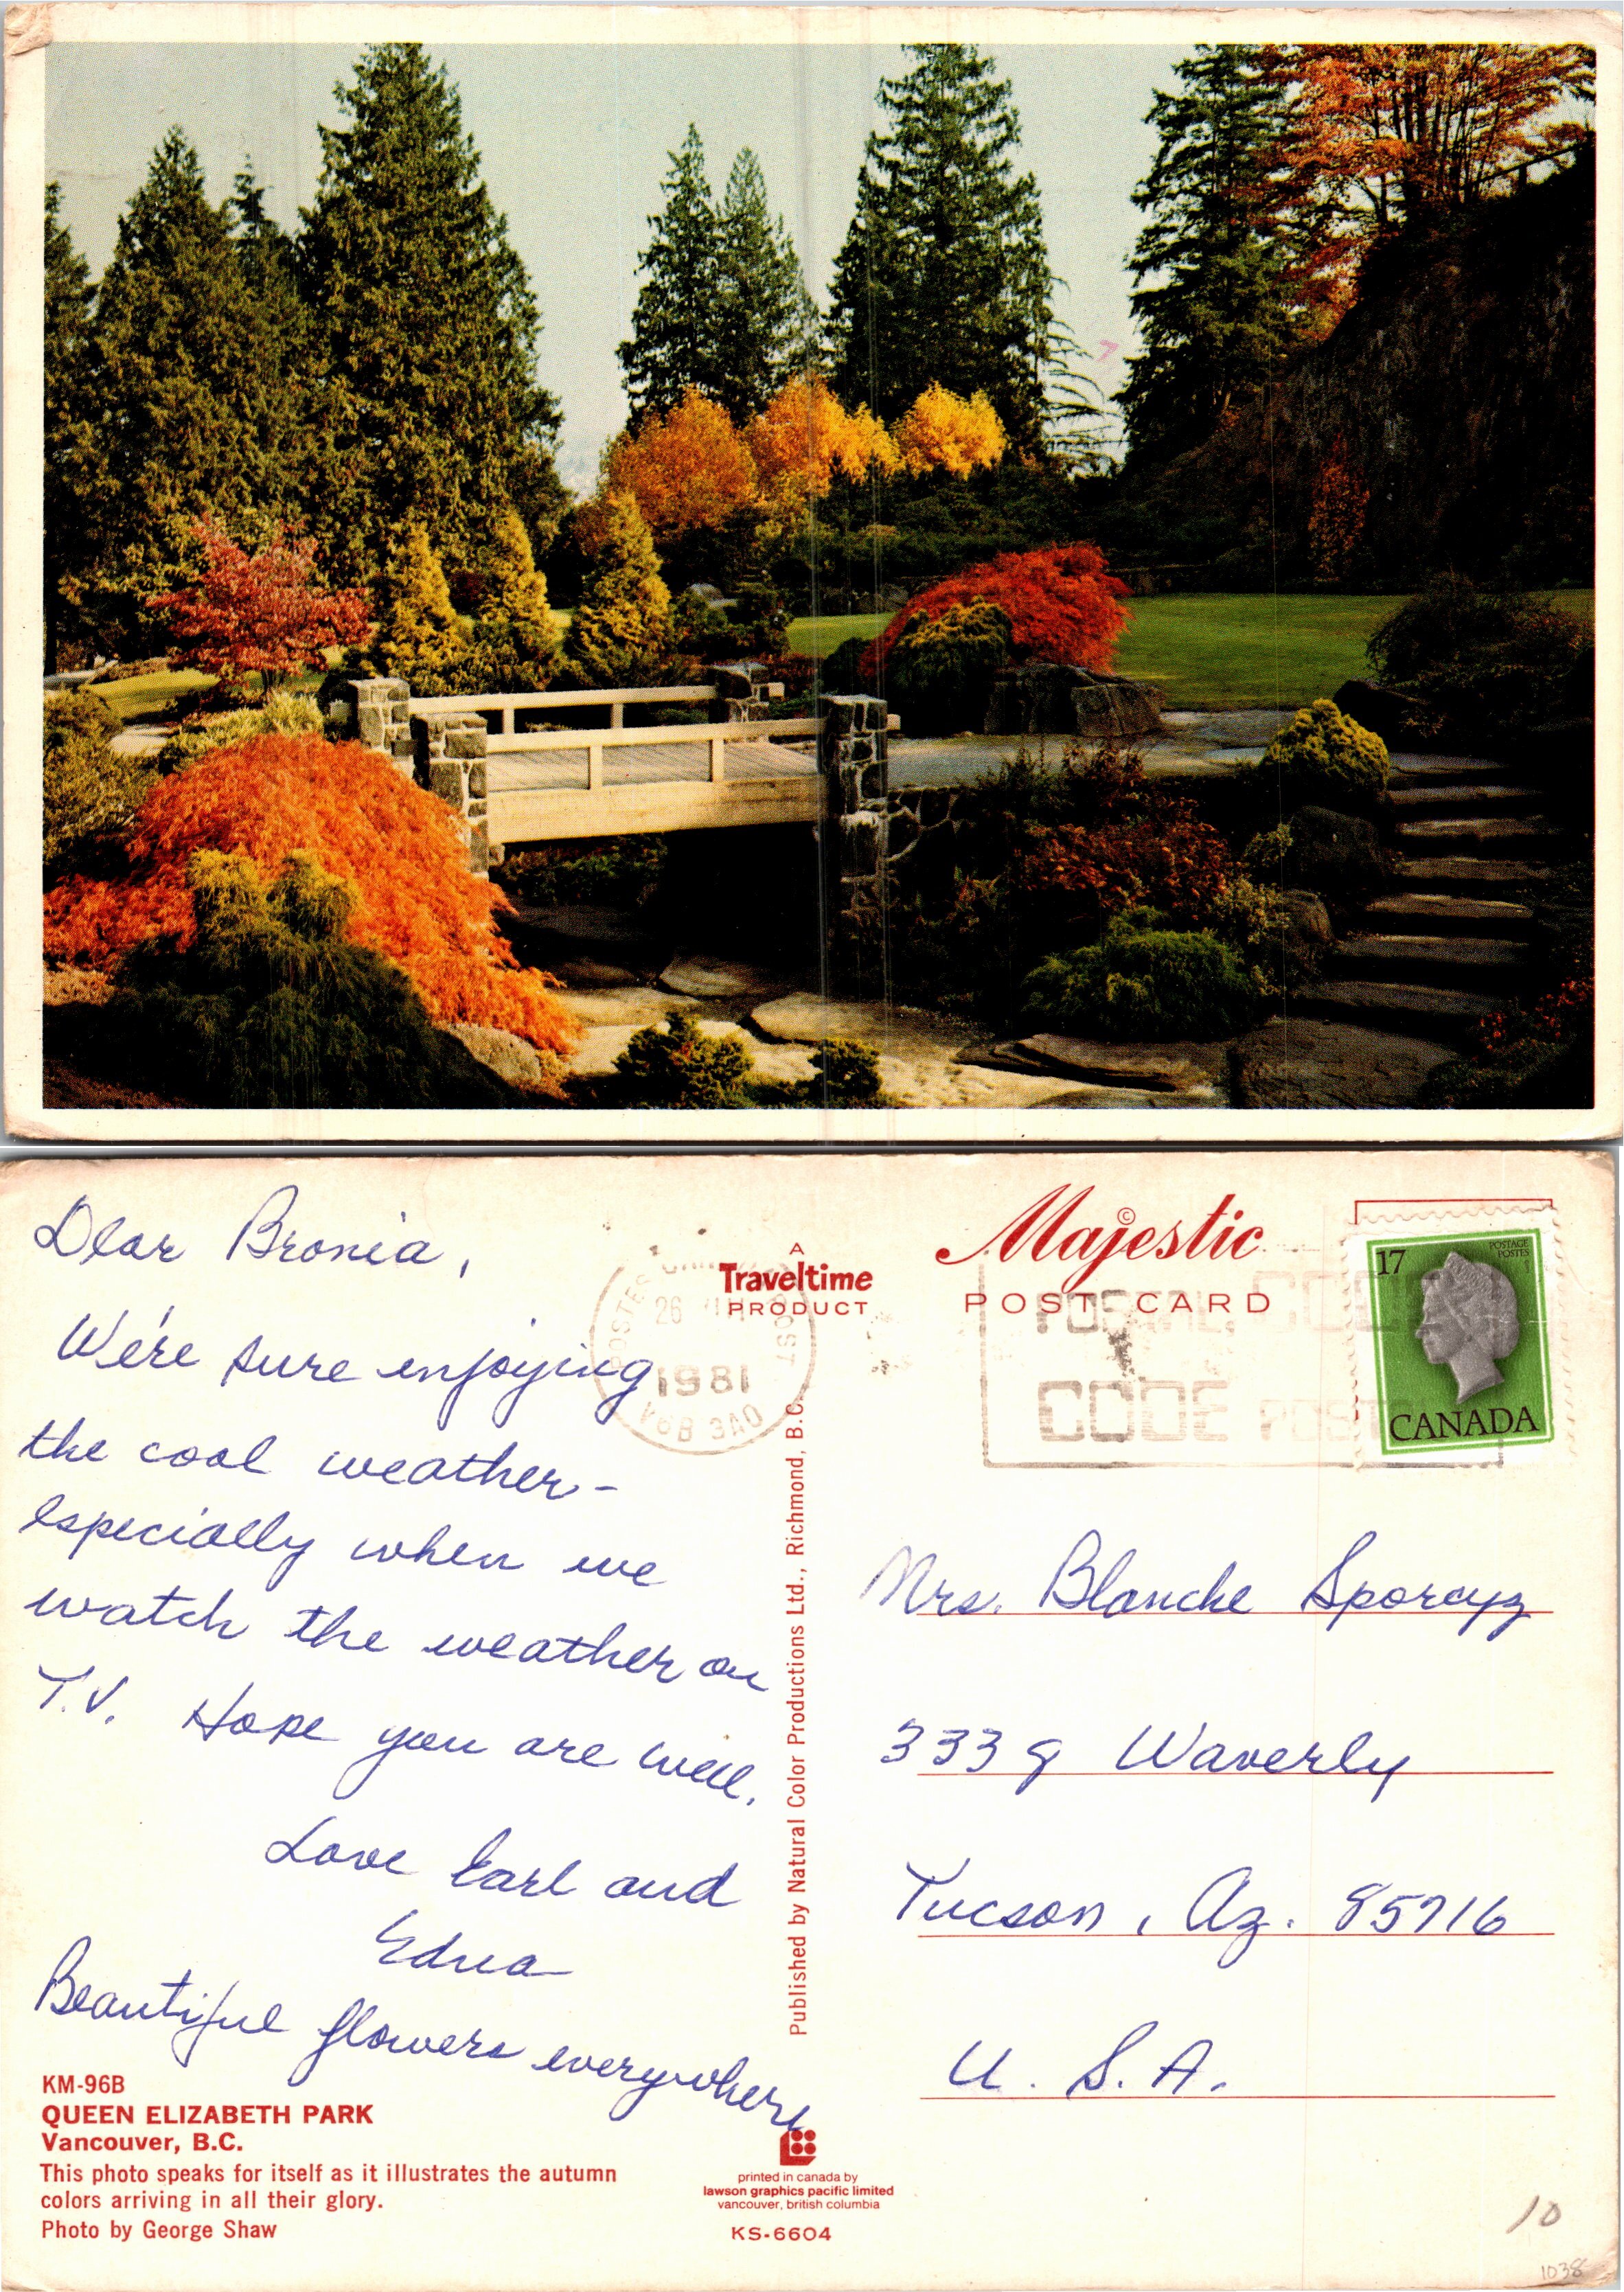 Dear Bronia,
We're sure enjoying
the cool weather-
especially when we
watch the weather on
T.V. Hope you are well.
Love Earl and
Edna
Beautiful flowers everywhere
KM-96B
QUEEN ELIZABETH PARK
Vancouver, B.C.
This photo speaks for itself as it illustrates the autumn
colors arriving in all their glory.
Photo by George Shaw
A
Traveltime
PRODUCT
26
1981
POST
Published by Natural Color Productions Ltd., Richmond, B.C.
printed in canada by
lawson graphics pacific limited
vancouver, british columbia
KS-6604
Majestic ©
POST CARD
POSTAL CODE
CODE POST
17
POSTAGE
POSTES
CANADA
Mrs. Blanche Sporcyz
3339 Waverly
Tucson, Az. 85716
U.S.A.
10
1038